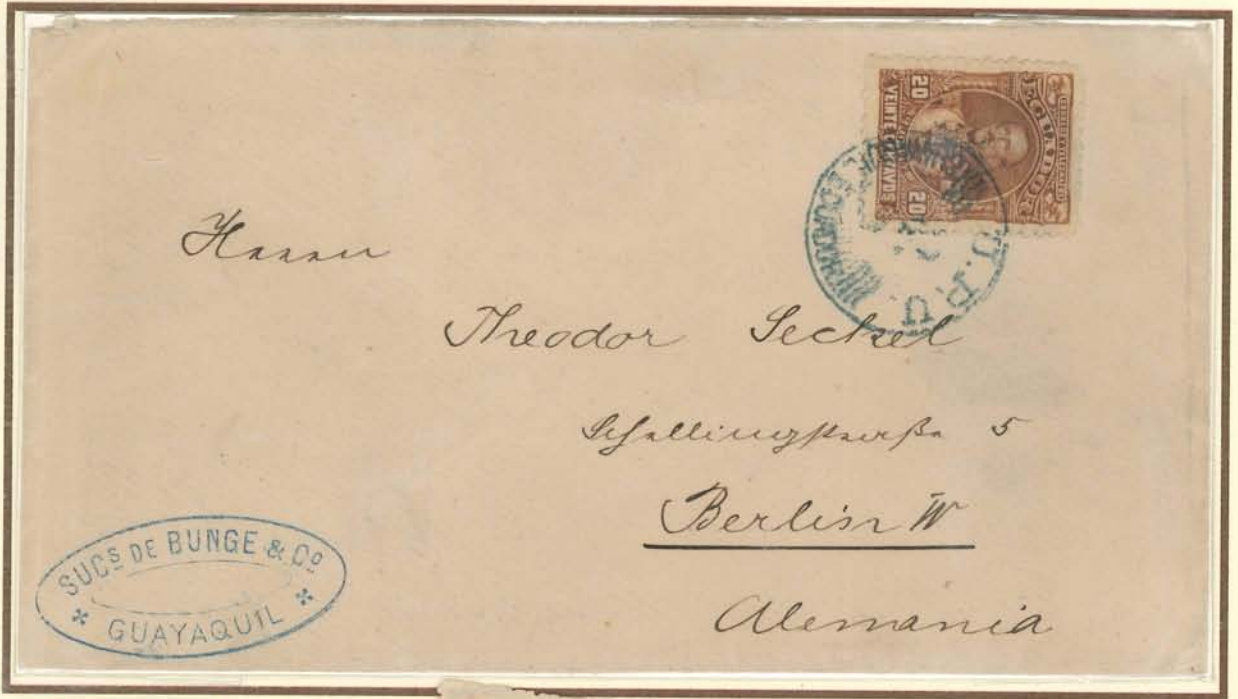 20 20
VEINTE CENTAVOS
ECUADOR
U.P.U.
Herrn
Theodor Seckel
Schellingstraße 5
Berlin W
Alemania
SUCS DE BUNGE & Co
GUAYAQUIL